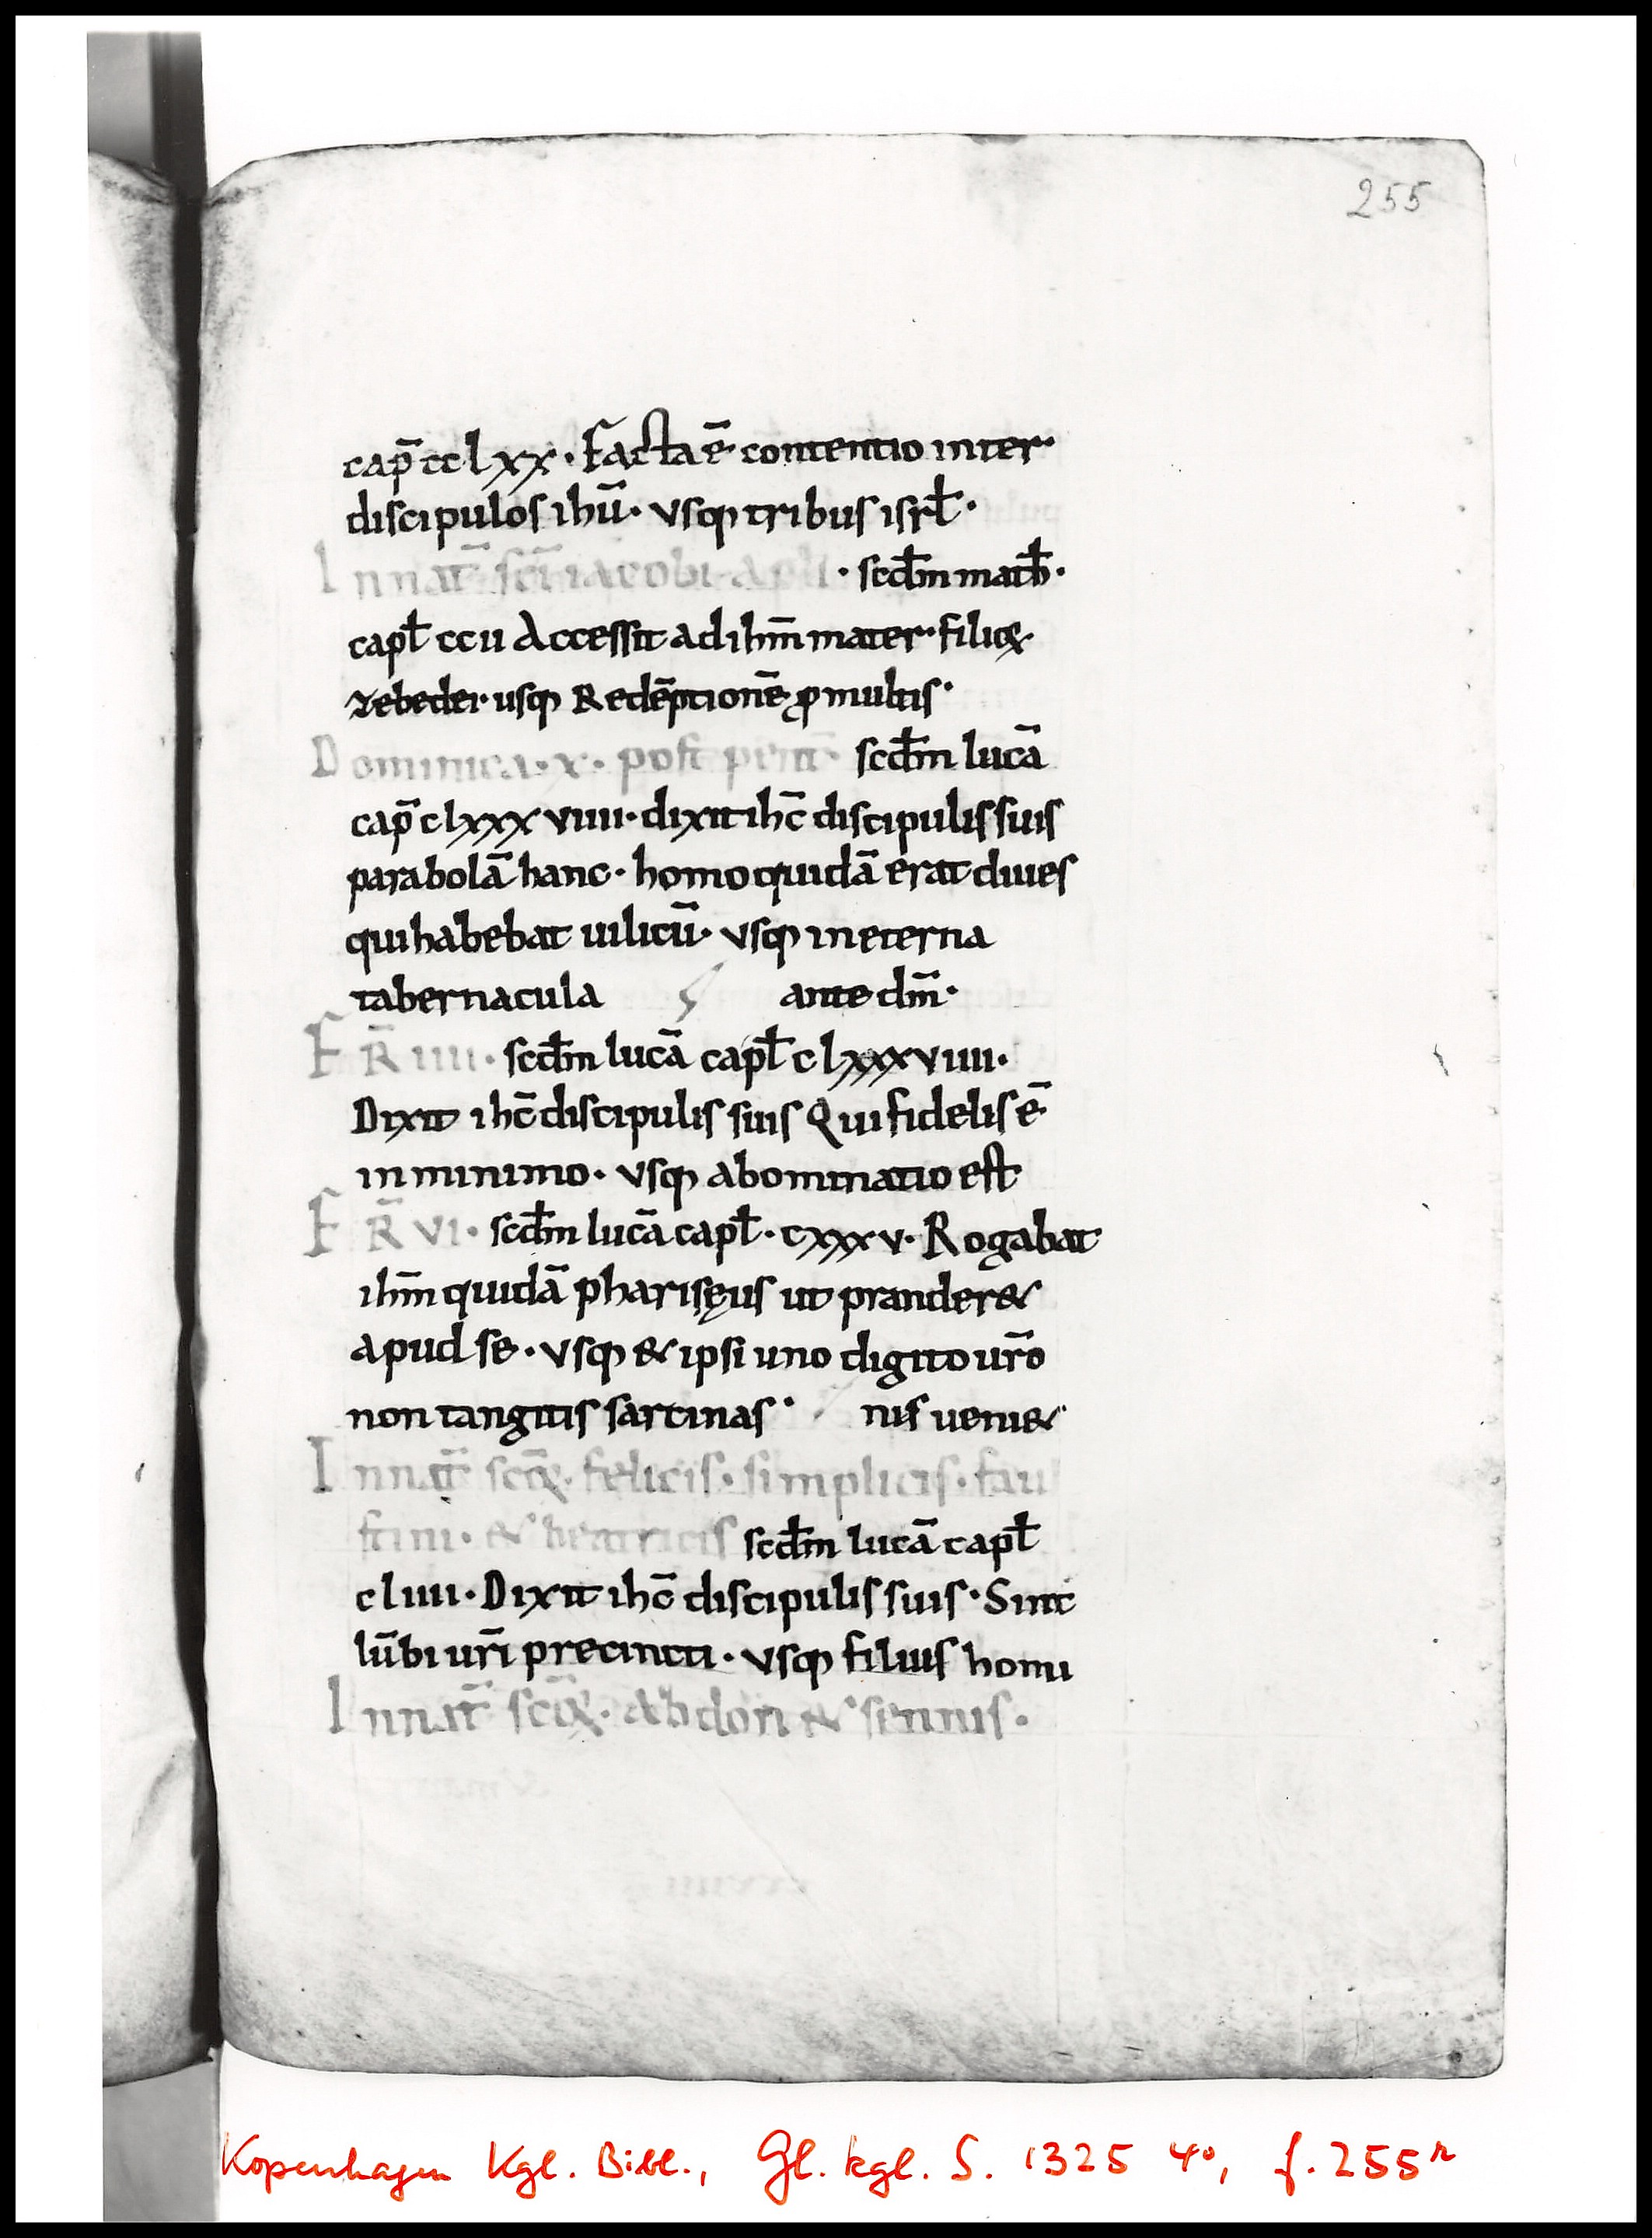 255
cap̄ cclxx · Facta ē contentio inter
discipulos ihū · vsq; tribus isrł ·
In nat̄ sc̄i iacobi apłi · scd̄m math̄ ·
capł ccii Accessit ad ihm̄ mater filioꝝ
zebedei · usq; Redēptionē ꝓ multis ·
Dominica · x · post pent̄ · scd̄m lucā
cap̄ clxxxviiii · dixit ihc̄ discipulis suis
parabolā hanc · homo quidā erat diues
qui habebat uilicū · vsq; in eterna
tabernacula ante dm̄ ·
FR̄ iiii · scd̄m lucā capł clxxxviiii ·
Dixit ihc̄ discipulis suis Qui fidelis ē
in minimo · vsq; abominatio est
FR̄ vi · scd̄m lucā capł · cxxxv · Rogabat
ihm̄ quidā pharisęus ut prander&
apud se · vsq; & ipsi uno digito ur̄o
non tangitis sarcinas · nis ueni&
In nat̄ sc̄oꝝ · felicis · simplicis · fau
stini · & beatricis scd̄m lucā capł
cliiii · Dixit ihc̄ discipulis suis · Sint
lūbi ur̄i precincti · vsq; filius homi
In nat̄ sc̄oꝝ · abdon & sennis ·
Kopenhagen Kgl. Bibl., Gl. kgl. S. 1325 4°, f. 255r